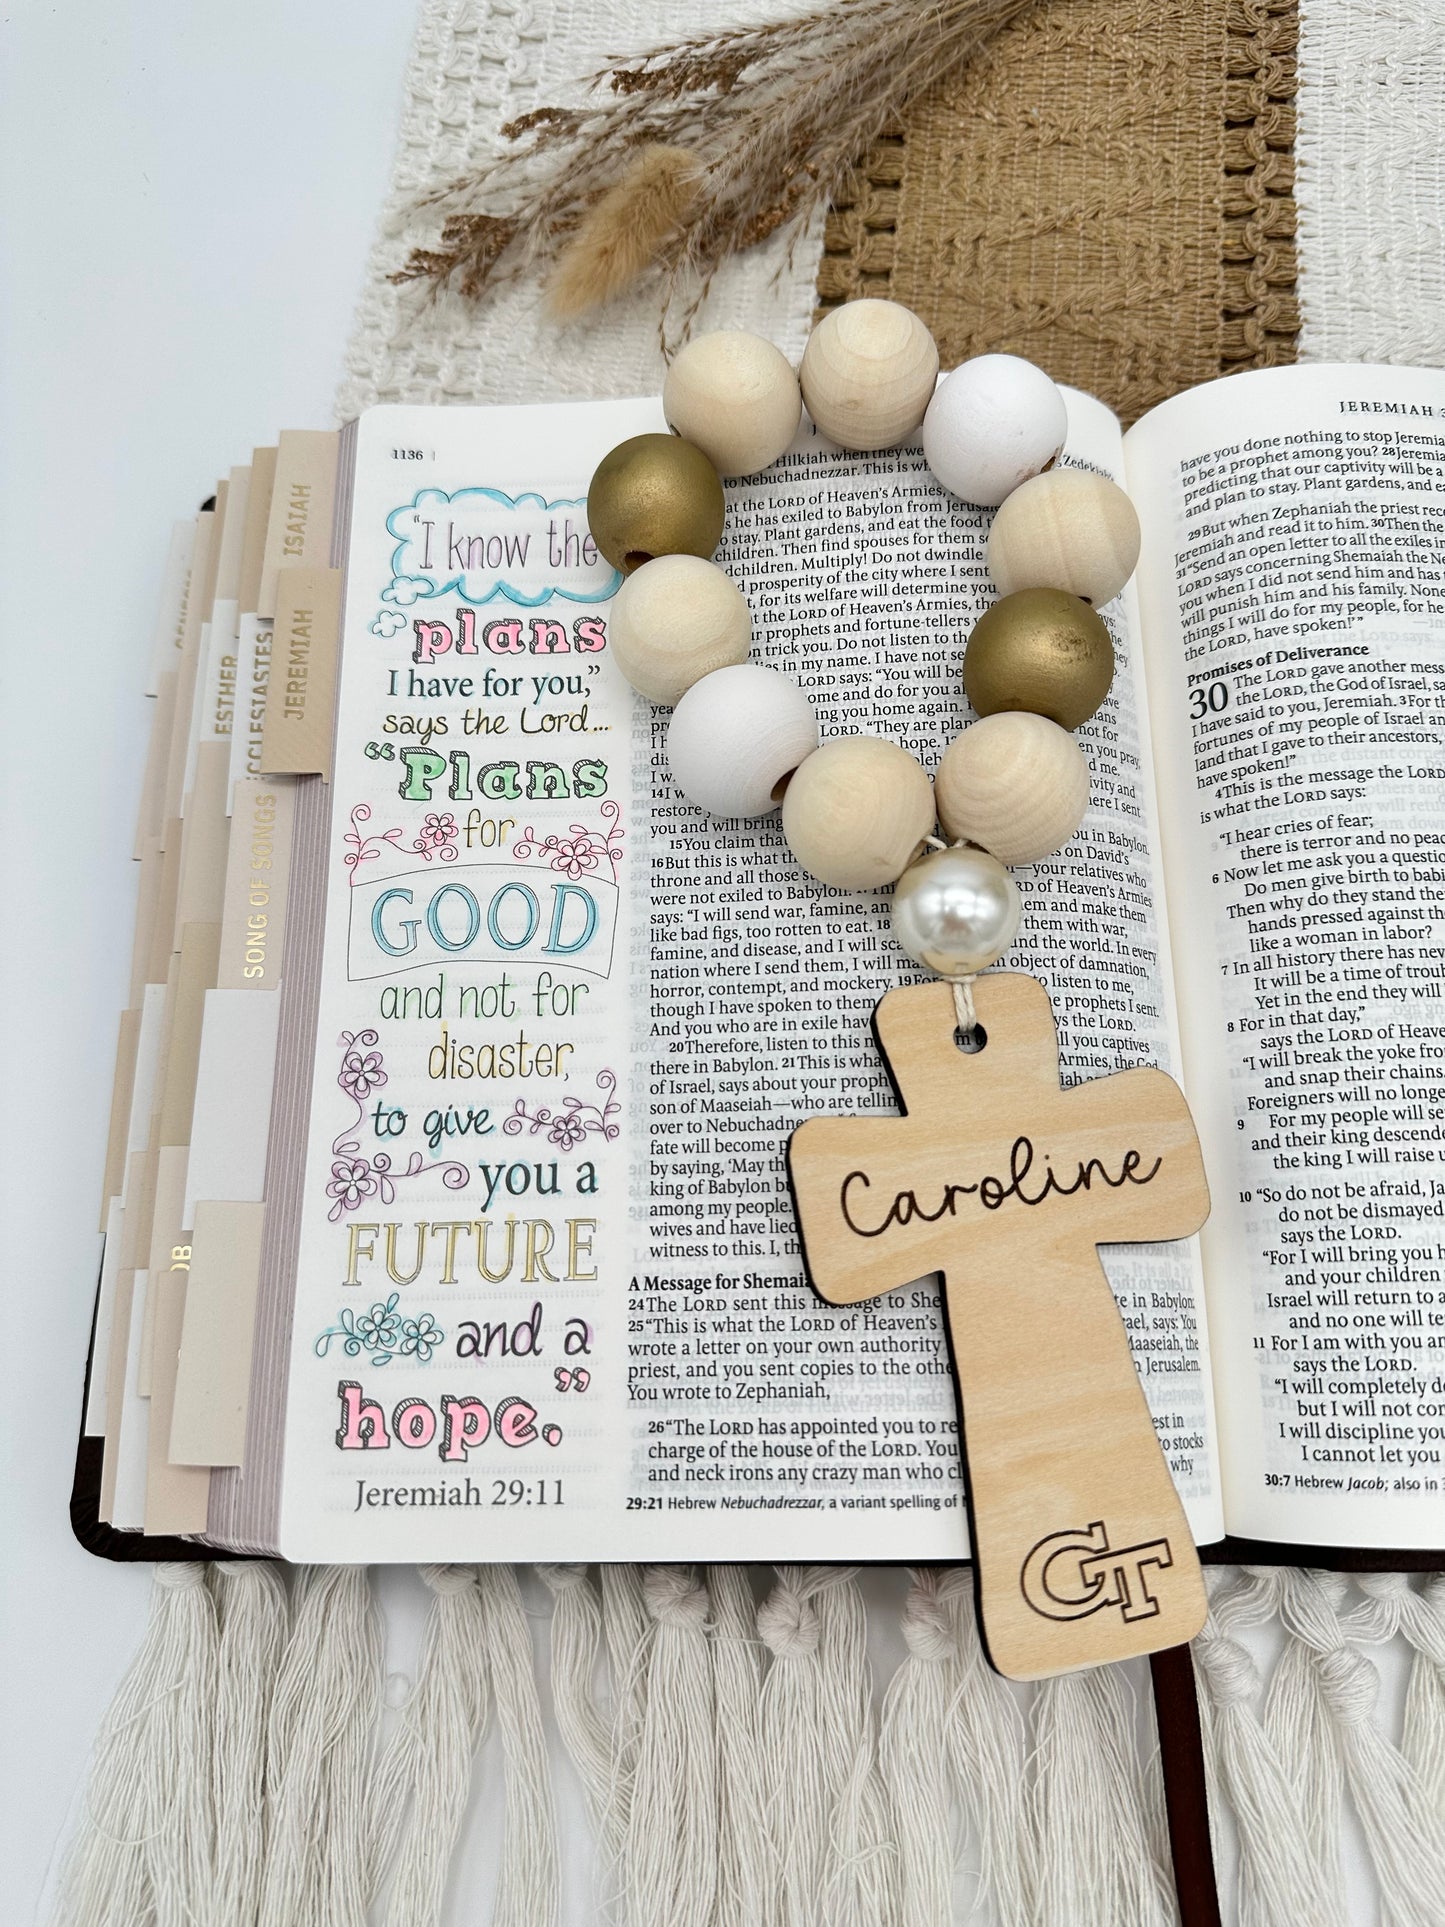 1136
ISAIAH
JEREMIAH
ESTHER
SONG OF SONGS
"I know the
plans
I have for you,"
says the Lord...
"Plans
for
GOOD
and not for
disaster,
to give
you a
FUTURE
and a
hope."
Jeremiah 29:11
Hilkiah when they we
to Nebuchadnezzar. This is
at the LORD of Heaven's Armies,
s he has exiled to Babylon from Jerusalem
o stay. Plant gardens, and eat the food
children. Then find spouses for them
dchildren. Multiply! Do not dwindle
d prosperity of the city where I sent
t, for its welfare will determine
t the LORD of Heaven's Armies, the
prophets and fortune-tellers
n trick you. Do not listen to
in my name. I have not
LORD says: "You will be
ome and do for you
ing you home again.
LORD. "They are
hope.
14 I
restore
you and will bring
15 You claim
16 But this is what
throne and all those
were not exiled to Babylon.
says: "I will send war, famine,
like bad figs, too rotten to eat. 18
famine, and disease, and I will
nation where I send them, I will
horror, contempt, and mockery. 19 For
though I have spoken to them
And you who are in exile have
20 Therefore, listen to this
there in Babylon. 21 This is what
of Israel, says about your
son of Maaseiah—who are
over to
fate will become
by saying, 'May
king of Babylon
among my people.
wives and have lied
witness to this. I,
A Message for
24 The LORD sent this message to
25 "This is what the LORD of Heaven's
wrote a letter on your own authority
priest, and you sent copies to the
You wrote to Zephaniah,
26 "The LORD has appointed you to
charge of the house of the LORD. You
and neck irons any crazy man who
29:21 Hebrew Nebuchadrezzar, a variant spelling of
Caroline
GT
you in Babylon.
on David's
your relatives who
RD of Heaven's Armies
em and make them
them with war,
nd the world. In every
n object of damnation,
to listen to me,
e prophets I sent.
ys the LORD.
ll you captives
Armies, the God
te in Babylon:
ael, says: You
Maaseiah, the
Jerusalem.
est in
to stocks
why
JEREMIAH
have you done nothing to stop
to be a prophet among you? 28
predicting that our captivity will be a
and plan to stay. Plant gardens, and
29 But when Zephaniah the priest
Jeremiah and read it to him. 30 Then the
31 "Send an open letter to all the exiles in
LORD says concerning Shemaiah the
you when I did not send him and has
will punish him and his family. None
things I will do for my people, for he
the LORD, have spoken!'"
Promises of Deliverance
30 The LORD gave another
the LORD, the God of Israel,
I have said to you, Jeremiah. 3 For
fortunes of my people of Israel
land that I gave to their ancestors,
have spoken!"
4 This is the message the LORD
is what the LORD says:
"I hear cries of fear;
there is terror and no
6 Now let me ask you a
Do men give birth to
Then why do they stand
hands pressed against
like a woman in labor?
7 In all history there has
It will be a time of
Yet in the end they will
8 For in that day,"
says the LORD of
"I will break the yoke
and snap their chains.
Foreigners will no
9 For my people will
and their king
the king I will raise
10 "So do not be afraid,
do not be dismayed
says the LORD.
"For I will bring you
and your children
Israel will return to
and no one will
11 For I am with you
says the LORD.
"I will completely
but I will not
I will discipline
I cannot let you
30:7 Hebrew Jacob; also in